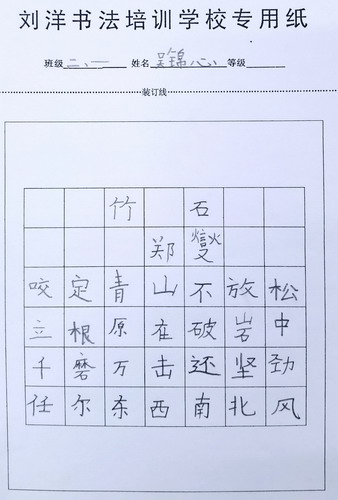 刘洋书法培训学校专用纸
班级 二、一 姓名 吴锦心 等级
装订线
竹 石
郑 燮
咬定青山不放松
立根原在破岩中
千磨万击还坚劲
任尔东西南北风